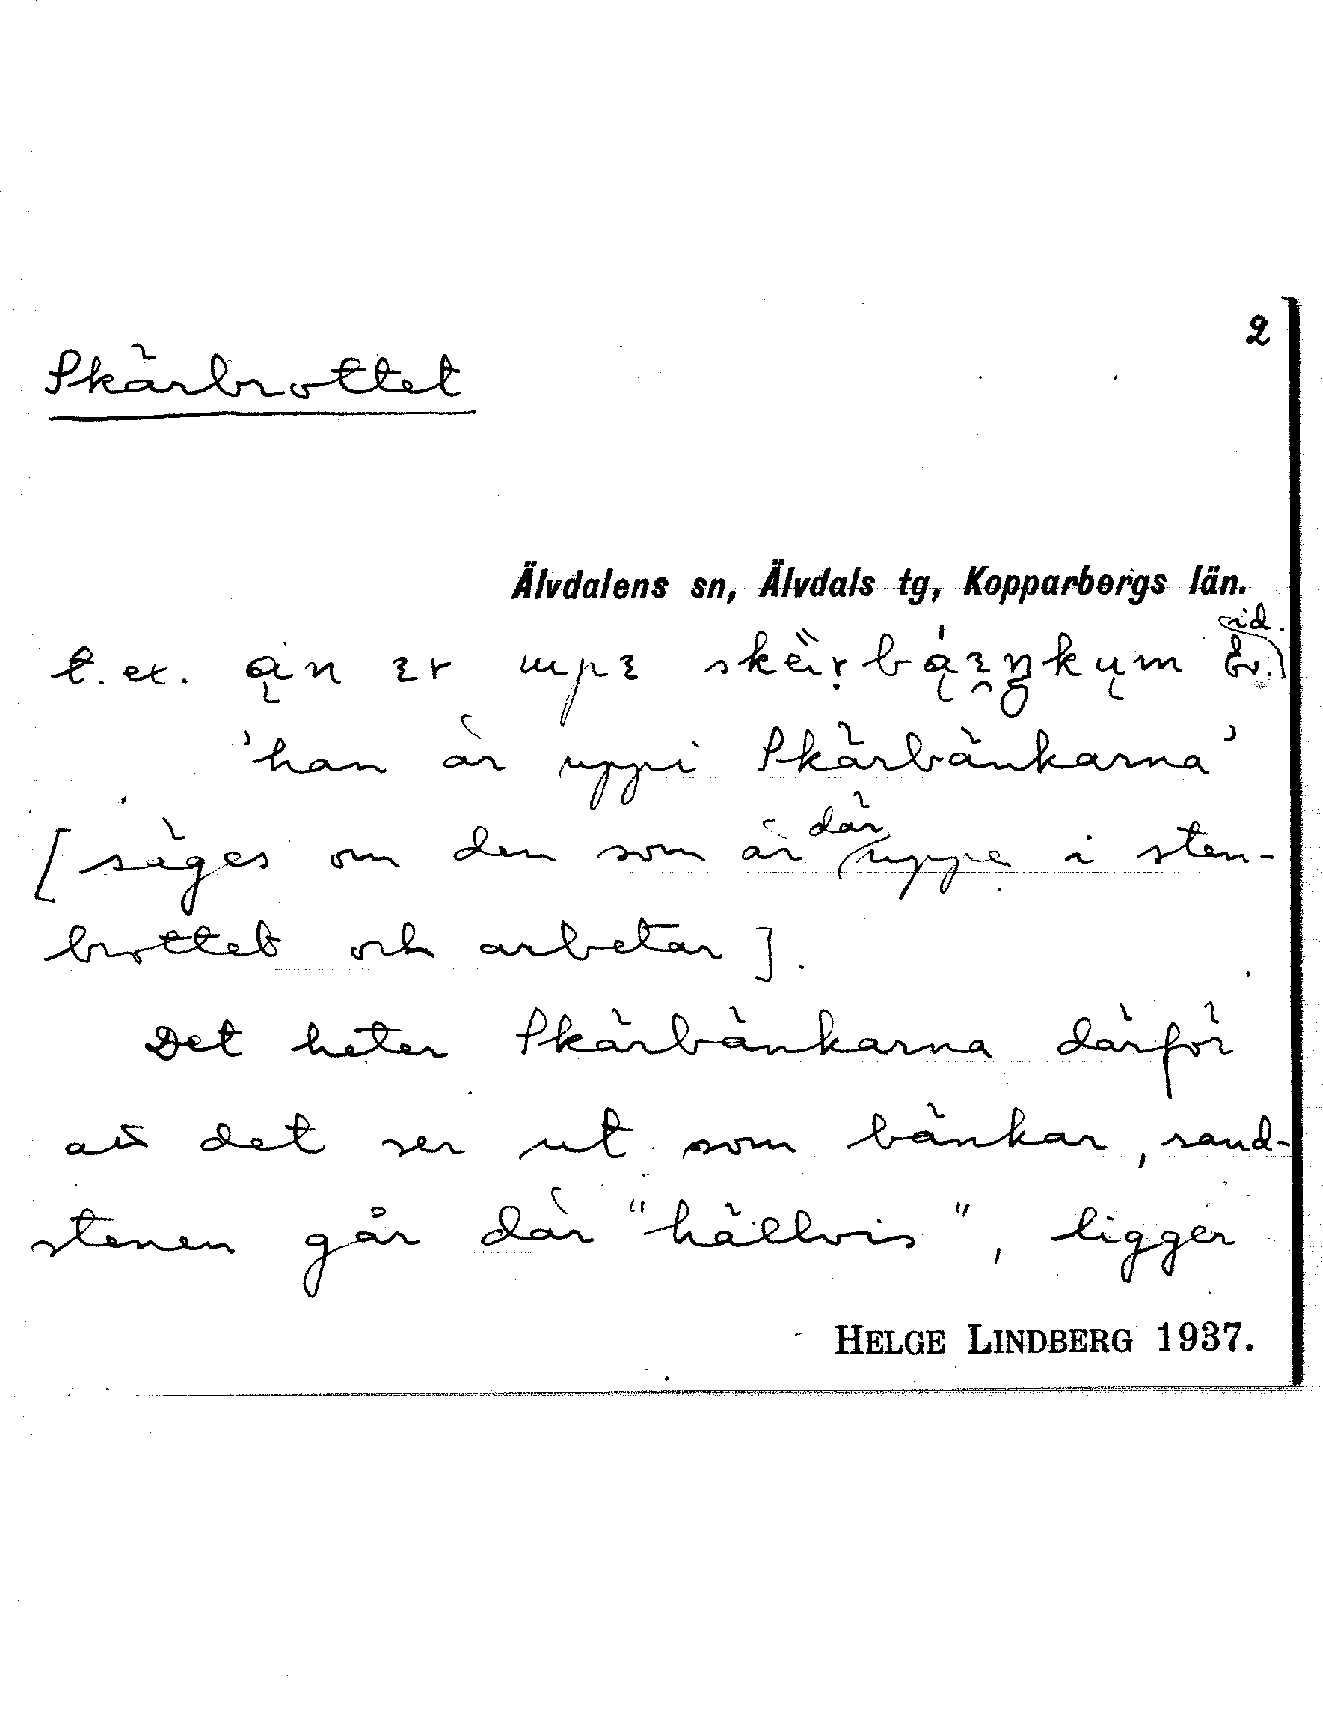 2
Skärbrottet
Älvdalens sn, Älvdals tg, Kopparbergs län.
t. ex.
'han är uppi Skärbänkarna'
[säges om den som är där uppe i sten-
brottet och arbetar].
Det heter Skärbänkarna därför
att det ser ut som bänkar, sand-
stenen går där "hällvis", ligger
HELGE LINDBERG 1937.